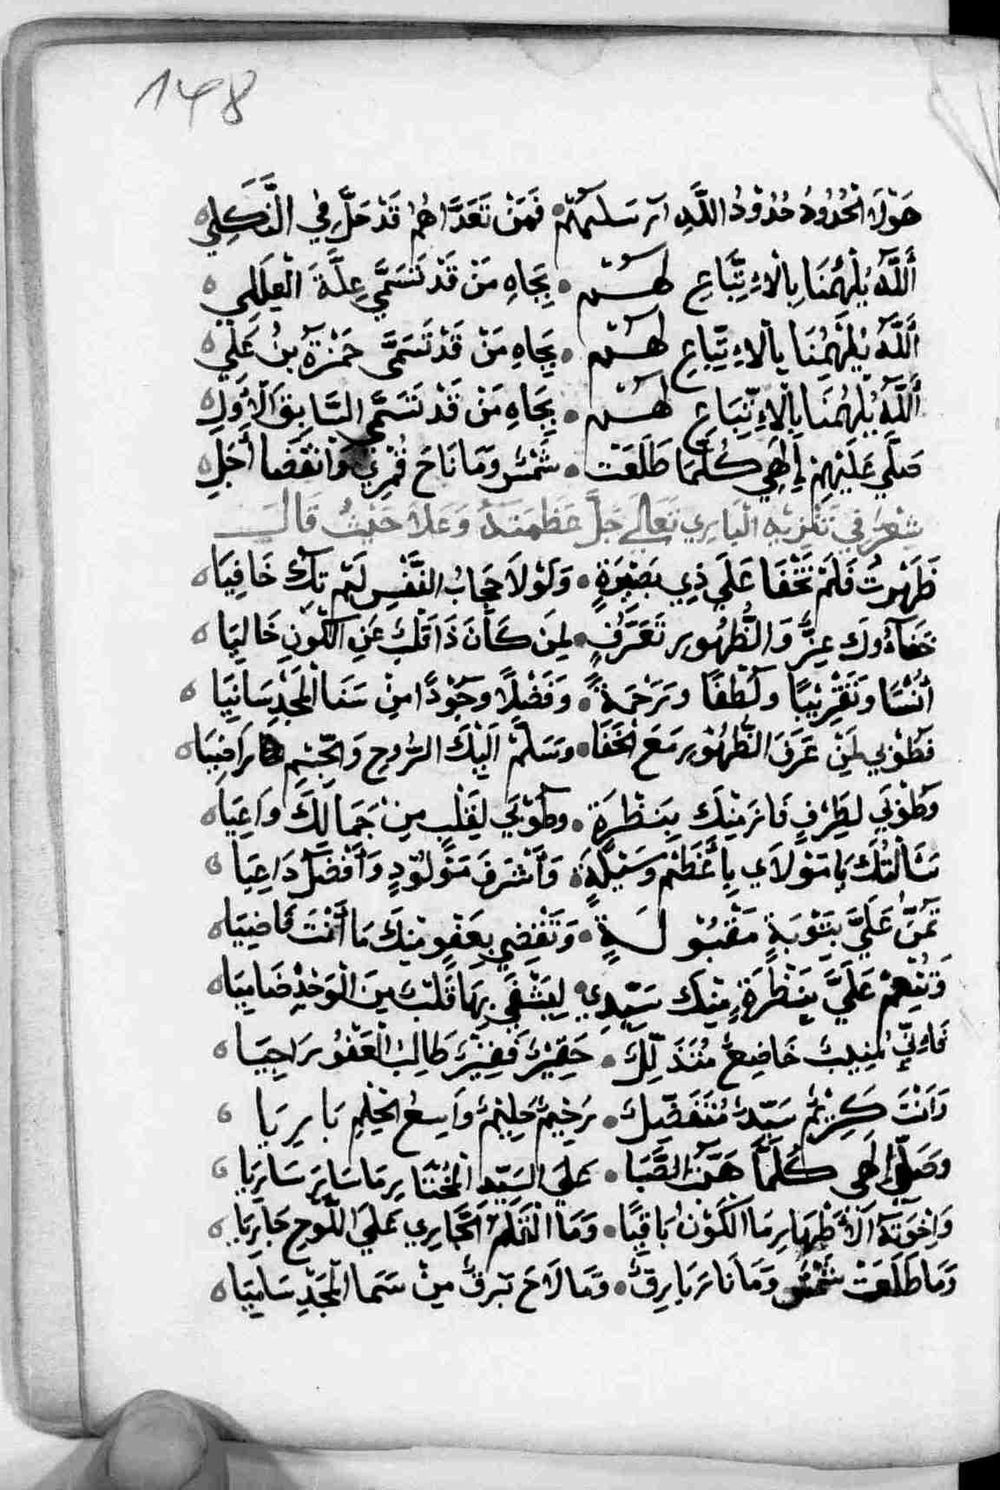 148
هَوْلَاءِ الْحُدُودُ حُدُودُ اللَّهِ فَمَنْ تَعَدَّاهُمُ قَدْ حَلَّ فِي النَّكَلِي
أَللَّهُ يُلْهِمُنَا بِالْاِتِّبَاعِ لَهُمْ بِجَاهِ مَنْ قَدْ تَسَمَّي عِلَّةَ الْعِلَلِي
أَللَّهُ يُلْهِمُنَا بِالْاِتِّبَاعِ لَهُمْ بِجَاهِ مَنْ قَدْ تَسَمَّى حَمْزَةَ بْنُ عَلِي
أَللَّهُ يُلْهِمُنَا بِالْاِتِّبَاعِ لَهُمْ بِجَاهِ مَنْ قَدْ تَسَمَّي السَّابِقَ الْأَوَلِ
صَلَّي عَلَيْهِمْ إِلَهِي كُلَّمَا طَلَعَتْ شَمْسٌ وَمَا نَاحَ قُمْرِيٌ وَانْقَضَا أَجَلِ
شِعْرٌ فِي تَنْزِيْهِ الْبَارِي تَعَالَى جَلَّ عَظَمَتَهُ وَعَلَا حَيْثُ قَالَ
ظَهَرْتَ فَلَمْ تَخْفَا عَلَي ذِي بَصِيْرَةٍ وَلَوْلَا حِجَابُ النَّفْسِ لَمْ تَكُ خَافِيَا
خَفَآؤُكَ عِزٌّ وَالظُّهُورُ تَعَرُّفٍ لِمَنْ كَانَ ذَا قَلْبٍ عَنِ الْكَوْنِ خَالِيَا
أُنْسًا وَتَقْرِيْبًا وَلُطْفًا وَرَحْمَةً وَفَضْلًا وَجُوْدًا مِنْ سَنَا الْمَجْدِ سَانِيَا
فَطُوْبِي لِمَنْ عَرَفَ الظُّهُوْرَ مَعَ الْخَفَا وَسَلَّمْ اِلَيْكَ الرُّوحِ وَالْجِسْمِ رَاضِيَا
وَطُوْبَي لِطَرْفٍ فَازَ مِنْكَ بِنَظْرَةٍ وَطُوْبَي لِقَلْبٍ مِنْ جَمَالِكَ وَاعِيَا
سَأَلْتُكَ يَا مَوْلَاي بِأَعْظَمْ وَسِيْلَةٍ وَأَشْرَفَ مَوْلُوْدٍ وَأَفْضَلَ دَاعِيَا
تَمُنَّ عَلَيَّ بِتَوْبَةٍ مَقْبُوْلَةٍ وَتَقْضِي بِعَفْوٍ مِنْكَ مَا أَنْتَ قَاضِيَا
وَتُنْعِمْ عَلَيَّ بِنَظْرَةٍ مِنْكَ سَيِّدِي لِيَشْفَي بِهَا قَلْبٌ مِنَ الْوَجْدِ ضَامِيَا
فَاِنِّي مُنِيبٌ خَاضِعٌ مُتَذَلِّلٌ حَقِيْرٌ فَقِيْرٌ طَالِبُ الْعَفْوِ رَاجِيَا
وَأَنْتَ كَرِيْمٌ سَيِّدٌ مُتَفَضِّلٌ رَحِيْمٌ حَلِيْمٌ وَاسِعُ الْحِلْمِ بَارِيَا
وَصَلِّي إِلَهِي كُلَّمَا هَبَّتْ الصَّبَا عَلَي السَّيِّدِ الْمُخْتَارِ مَا سَارَ سَارِيَا
وَاِخْوَتِهِ الْأَطْهَارِ مَا الْكَوْنُ بَاقِيًا وَمَا الْقَلَمُ الْجَارِي عَلَي اللَّوحِ جَارِيَا
وَمَا طَلَعَتْ شَمْسٌ وَمَا نَارَ بَارِقٌ وَمَا لَاحَ بَرْقٌ مِنْ سَمَا الْمَجْدِ سَامِيَا